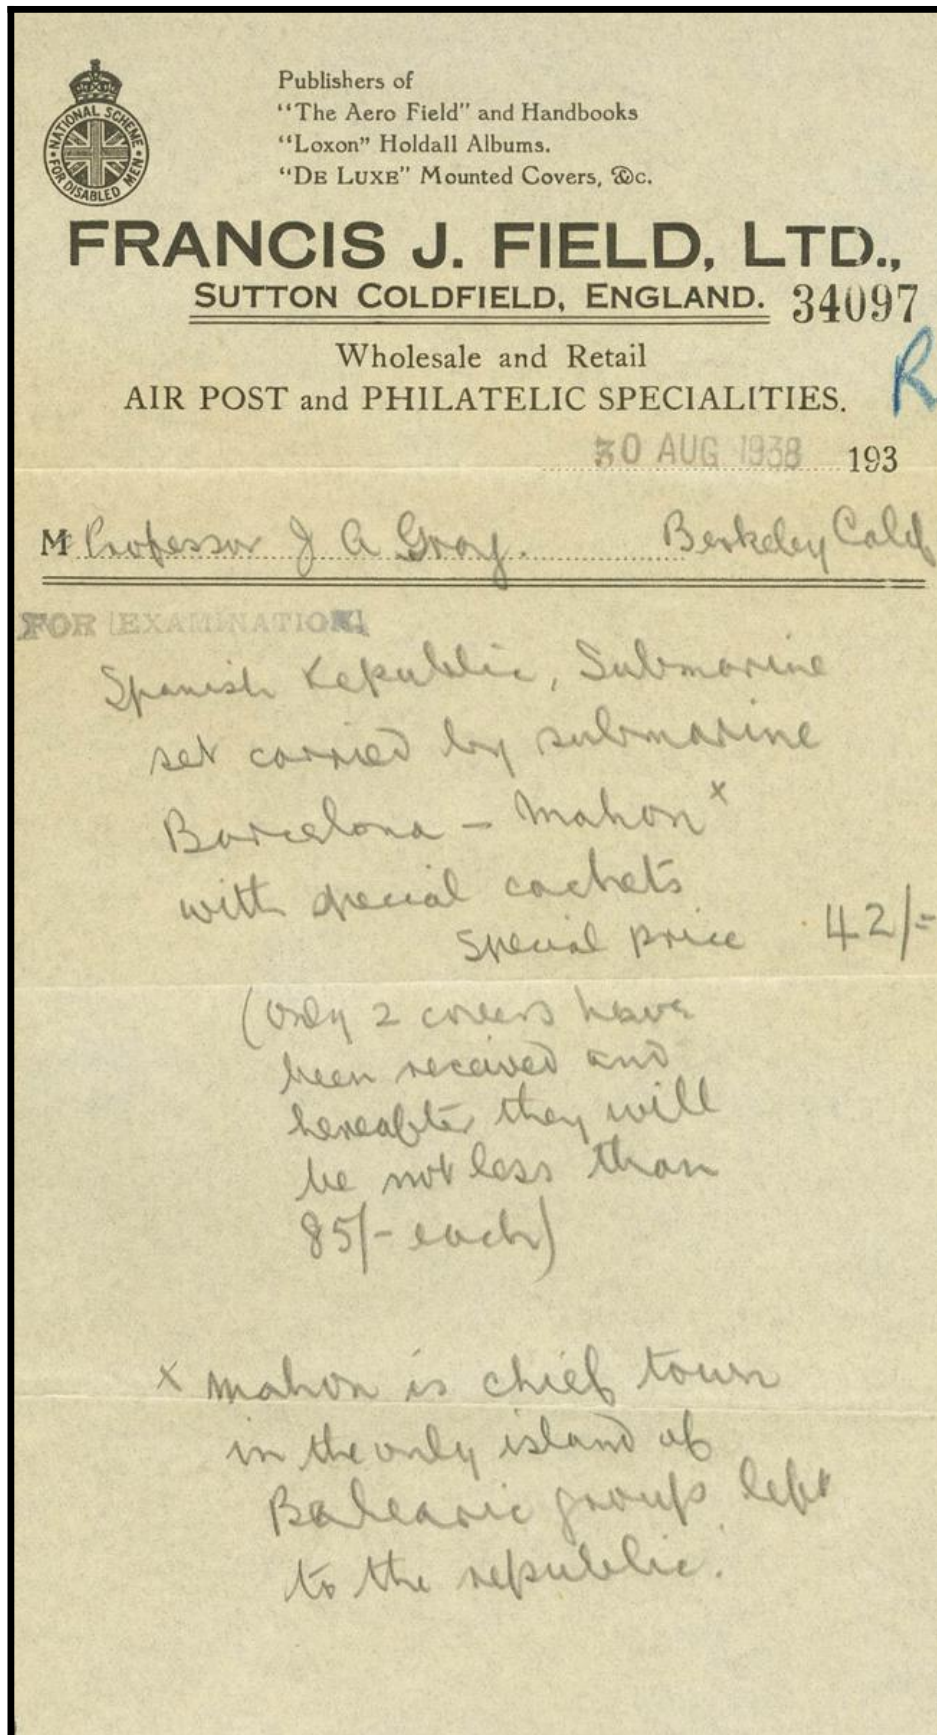 NATIONAL SCHEME
FOR DISABLED MEN
Publishers of
"The Aero Field" and Handbooks
"Loxon" Holdall Albums.
"DE LUXE" Mounted Covers, &c.
FRANCIS J. FIELD, LTD.,
SUTTON COLDFIELD, ENGLAND. 34097
Wholesale and Retail
AIR POST and PHILATELIC SPECIALITIES. R
30 AUG 1938 193
M Professor J A Gray. Berkeley Calif
FOR EXAMINATION
Spanish Republic, Submarine
set carried by submarine
Barcelona - Mahon x
with special cachets
Special price 42/=
(Only 2 covers have
been received and
hereafter they will
be not less than
85/- each)
x Mahon is chief town
in the only island of
Balearic group left
to the republic.